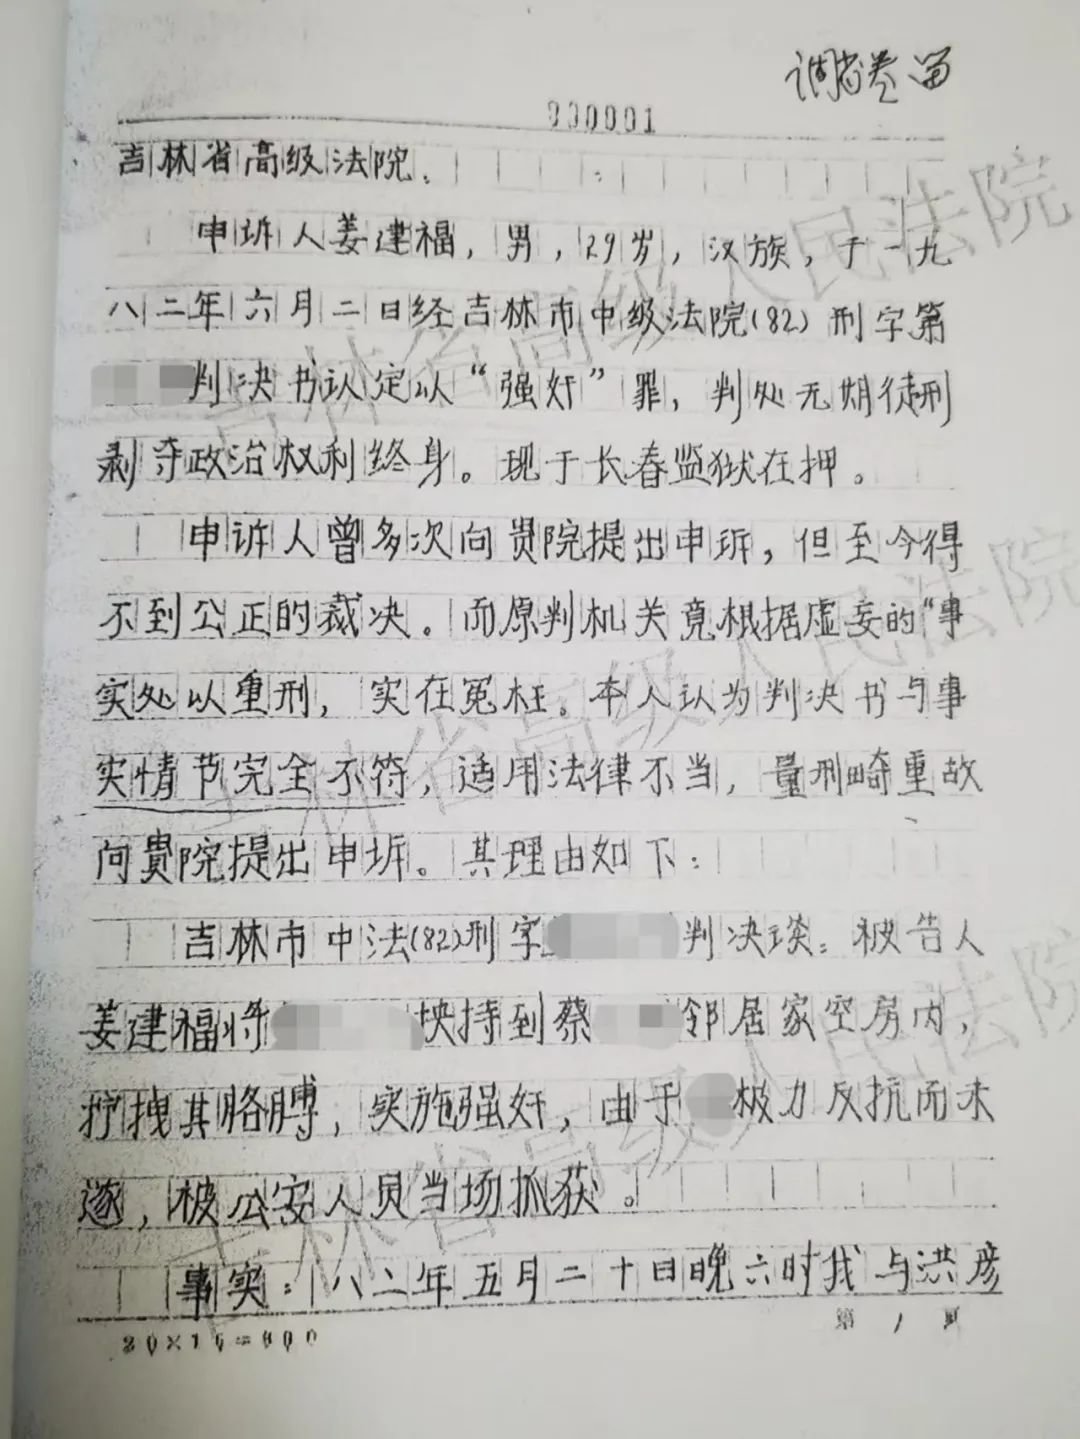 调省卷
000001
吉林省高级法院.
申诉人姜建福，男，29岁，汉族，于一九
八二年六月二日经吉林市中级法院(82)刑字第
判决书认定以“强奸”罪，判处无期徒刑
剥夺政治权利终身。现于长春监狱在押。
申诉人曾多次向贵院提出申诉，但至今得
不到公正的裁决。而原判机关竟根据虚妄的“事
实处以重刑，实在冤枉。本人认为判决书与事
实情节完全不符，适用法律不当，量刑畸重故
向贵院提出申诉。其理由如下：
吉林市中法(82)刑字判决谈：被告人
姜建福将挟持到蔡邻居家空房内，
拧拽其胳膊，实施强奸，由于极力反抗而未
遂，被公安人员当场抓获。
事实：八二年五月二十日晚六时我与洪彦
20×15=300
第1页
吉林省高级人民法院
吉林省高级人民法院
吉林省高级人民法院